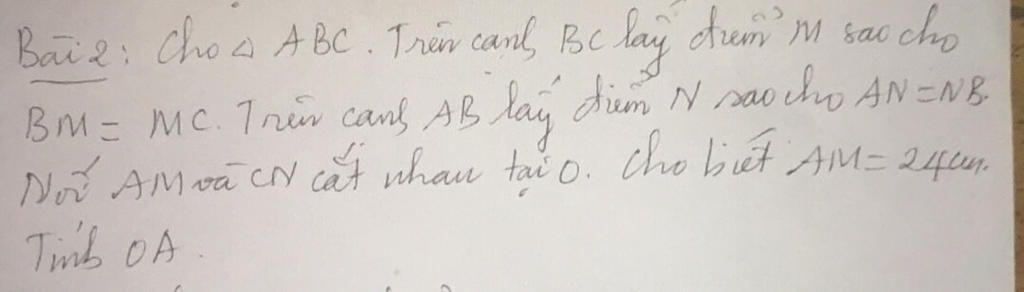 Bài 2: Cho △ ABC. Trên cạnh BC lấy điểm M sao cho
BM = MC. Trên cạnh AB lấy điểm N sao cho AN = NB.
Nối AM và CN cắt nhau tại O. Cho biết AM = 24cm.
Tính OA.